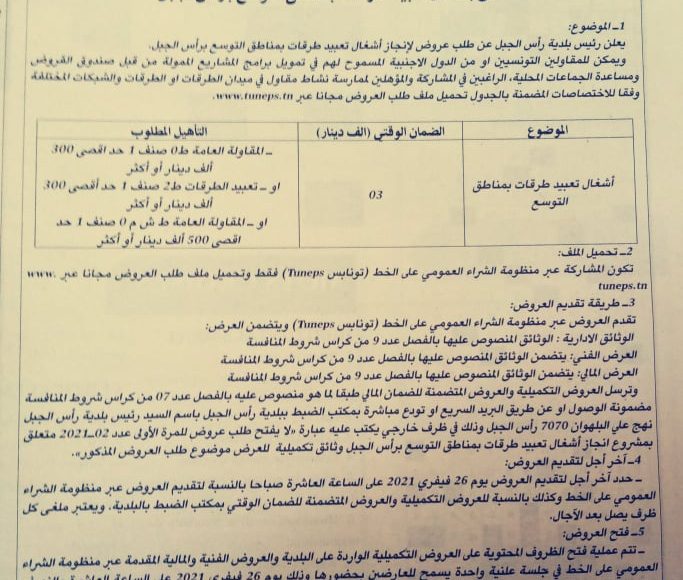 1ـ الموضوع:
يعلن رئيس بلدية رأس الجبل عن طلب عروض لإنجاز أشغال تعبيد طرقات بمناطق التوسع برأس الجبل.
ويمكن للمقاولين التونسيين او من الدول الاجنبية المسموح لهم في تمويل برامج المشاريع الممولة من قبل صندوق القروض
ومساعدة الجماعات المحلية، الراغبين في المشاركة والمؤهلين لممارسة نشاط مقاول في ميدان الطرقات او الطرقات والشبكات المختلفة
وفقا للاختصاصات المضمنة بالجدول تحميل ملف طلب العروض مجانا عبر www.tuneps.tn.
الموضوع
الضمان الوقتي (الف دينار)
التأهيل المطلوب
أشغال تعبيد طرقات بمناطق
التوسع
03
ـ المقاولة العامة ط0 صنف 1 حد اقصى 300
ألف دينار أو أكثر
او ـ تعبيد الطرقات ط2 صنف 1 حد أقصى 300
ألف دينار أو أكثر
او ـ المقاولة العامة ط ش م 0 صنف 1 حد
اقصى 500 ألف دينار أو أكثر
2ـ تحميل الملف:
تكون المشاركة عبر منظومة الشراء العمومي على الخط (تونابس Tuneps) فقط وتحميل ملف طلب العروض مجانا عبر www.
tuneps.tn
3ـ طريقة تقديم العروض:
تقدم العروض عبر منظومة الشراء العمومي على الخط (تونابس Tuneps) ويتضمن العرض:
الوثائق الادارية : الوثائق المنصوص عليها بالفصل عدد 9 من كراس شروط المنافسة
العرض الفني: يتضمن الوثائق المنصوص عليها بالفصل عدد 9 من كراس شروط المنافسة
العرض المالي: يتضمن الوثائق المنصوص عليها بالفصل عدد 9 من كراس شروط المنافسة
وترسل العروض التكميلية والعروض المتضمنة للضمان المالي طبقا لما هو منصوص عليه بالفصل عدد 07 من كراس شروط المنافسة
مضمونة الوصول او عن طريق البريد السريع او تودع مباشرة بمكتب الضبط ببلدية رأس الجبل باسم السيد رئيس بلدية رأس الجبل
نهج علي البلهوان 7070 رأس الجبل وذلك في ظرف خارجي يكتب عليه عبارة «لا يفتح طلب عروض للمرة الأولى عدد 02ـ2021 متعلق
بمشروع انجاز أشغال تعبيد طرقات بمناطق التوسع برأس الجبل وثائق تكميلية للعرض موضوع طلب العروض المذكور».
4ـ آخر أجل لتقديم العروض:
ـ حدد آخر أجل لتقديم العروض يوم 26 فيفري 2021 على الساعة العاشرة صباحا بالنسبة لتقديم العروض عبر منظومة الشراء
العمومي على الخط وكذلك بالنسبة للعروض التكميلية والعروض المتضمنة للضمان الوقتي بمكتب الضبط بالبلدية. ويعتبر ملغى كل
ظرف يصل بعد الآجال.
5ـ فتح العروض:
ـ تتم عملية فتح الظروف المحتوية على العروض التكميلية الواردة على البلدية والعروض الفنية والمالية المقدمة عبر منظومة الشراء
العمومي على الخط في جلسة علنية واحدة يسمح للعارضين بحضورها وذلك يوم 26 فيفري 2021 على الساعة